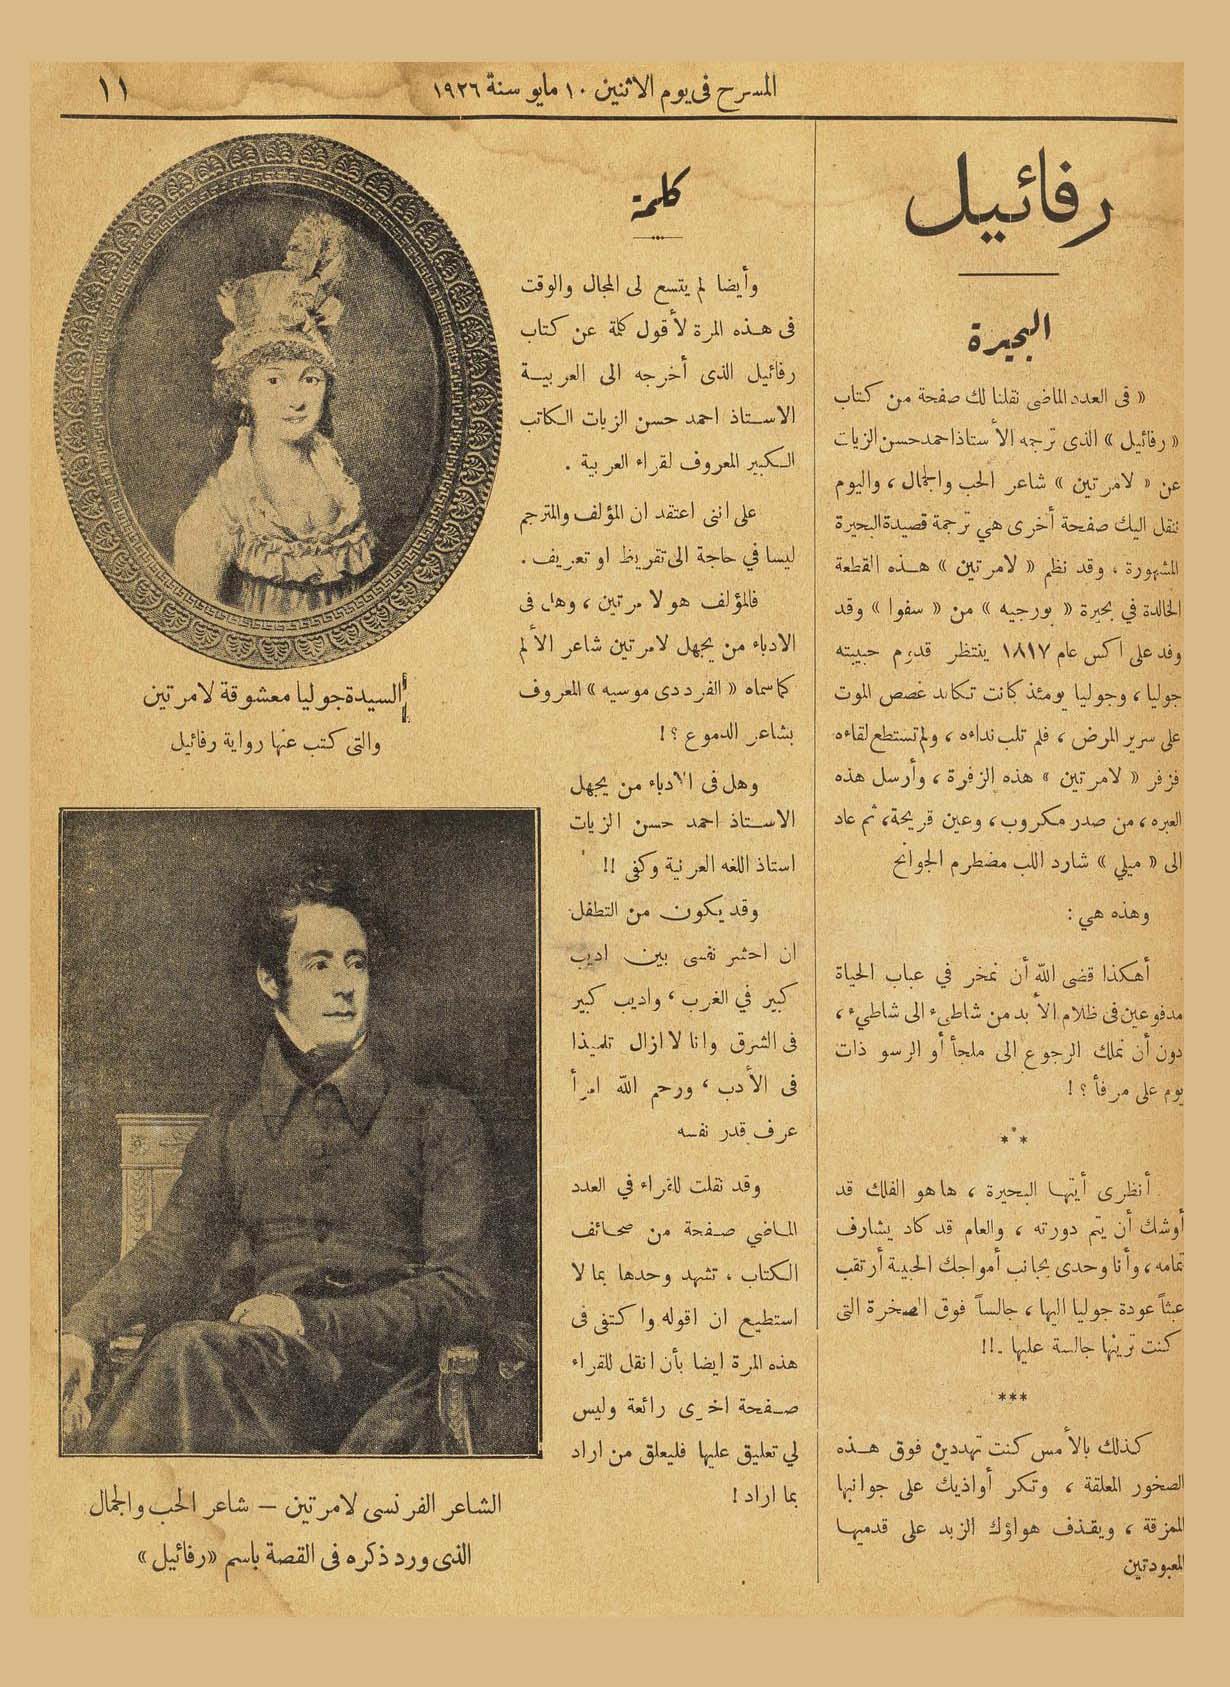 المسرح فى يوم الاثنين ١٠ مايو سنة ١٩٢٦
١١
رفائيل
البحيرة
« فى العدد الماضى نقلنا لك صفحة من كتاب
« رفائيل » الذى ترجمه الأستاذ احمد حسن الزيات
عن « لامرتين » شاعر الحب والجمال ، واليوم
ننقل اليك صفحة أخرى هي ترجمة قصيدة البحيرة
المشهورة ، وقد نظم « لامرتين » هذه القطعة
الخالدة في بحيرة « بورجيه » من « سفوا » وقد
وفد على اكس عام ١٨١٧ ينتظر قدوم حبيبته
جوليا ، وجوليا يومئذ كانت تكابد غصص الموت
على سرير المرض ، فلم تلب نداءه ، ولم تستطع لقاءه
فزفر « لامرتين » هذه الزفرة ، وأرسل هذه
العبره ، من صدر مكروب ، وعين قريحة، ثم عاد
الى « ميلي » شارد اللب مضطرم الجوانح
وهذه هي :
أهكذا قضى الله أن نمخر في عباب الحياة
مدفوعين فى ظلام الأبد من شاطىء الى شاطيء ،
دون أن نملك الرجوع الى ملجأ أو الرسو ذات
يوم على مرفأ ؟ !
***
أنظرى أيتها البحيرة ، ها هو الفلك قد
أوشك أن يتم دورته ، والعام قد كاد يشارف
تمامه ، وأنا وحدى بجانب أمواجك الحبيبة أرتقب
عبثاً عودة جوليا اليها ، جالساً فوق الصخرة التى
كنت ترينها جالسة عليها .!!
***
كذلك بالأمس كنت تهددين فوق هذه
الصخور المعلقة ، وتكر أواذيك على جوانبها
الممزقة ، ويقذف هواؤك الزبد على قدميها
المعبودتين
كلمة
وأيضا لم يتسع لى المجال والوقت
فى هذه المرة لأقول كلمة عن كتاب
رفائيل الذى أخرجه الى العربية
الاستاذ احمد حسن الزيات الكاتب
الكبير المعروف لقراء العربية .
على اننى اعتقد ان المؤلف والمترجم
ليسا في حاجة الى تقريظ او تعريف .
فالمؤلف هو لامرتين ، وهل فى
الادباء من يجهل لامرتين شاعر الألم
كما سماه « الفرد دى موسيه » المعروف
بشاعر الدموع ؟ !
وهل فى الادباء من يجهل
الاستاذ احمد حسن الزيات
استاذ اللغه العربية وكفى !!
وقد يكون من التطفل
ان احشر نفسى بين اديب
كبير في الغرب ، واديب كبير
فى الشرق وانا لا ازال تلميذا
فى الأدب ، ورحم الله امرأ
عرف قدر نفسه
وقد نقلت للقراء في العدد
الماضي صفحة من صحائف
الكتاب ، تشهد وحدها بما لا
استطيع ان اقوله واكتفى فى
هذه المرة ايضا بأن انقل للقراء
صفحة اخرى رائعة وليس
لي تعليق عليها فليعلق من اراد
بما اراد !
السيدة جوليا معشوقة لامرتين
والتى كتب عنها رواية رفائيل
الشاعر الفرنسى لامرتين — شاعر الحب والجمال
الذى ورد ذكره فى القصة باسم «رفائيل»